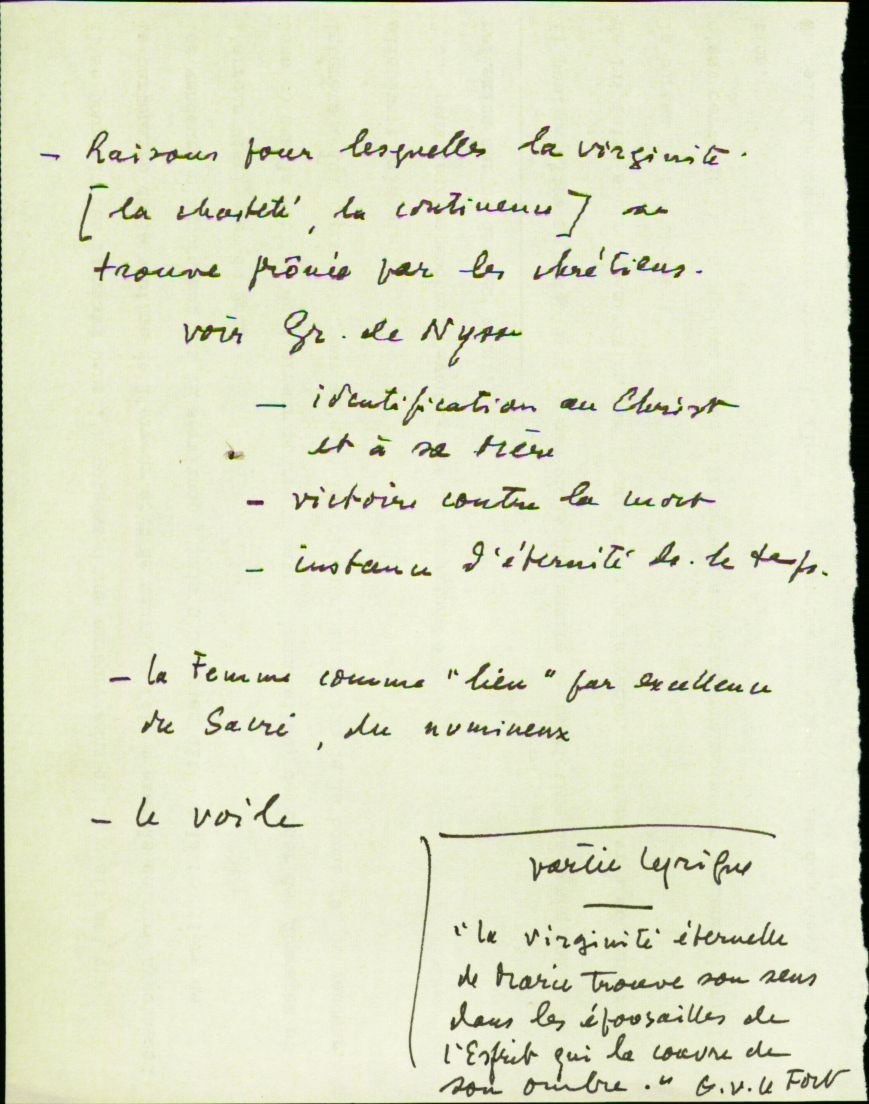 - Raisons pour lesquelles la virginité.
[la chasteté, la continence] se
trouve prônée par les chrétiens.
voir Gr. de Nysse
- identification au Christ
et à sa Mère
- victoire contre la mort
- instance d'éternité ds. le temps.
- la Femme comme "lieu" par excellence
du Sacré, du numineux
- le voile
partie lyrique
"la virginité éternelle
de Marie trouve son sens
dans les épousailles de
l'Esprit qui la couvre de
son ombre." G.v. le Fort